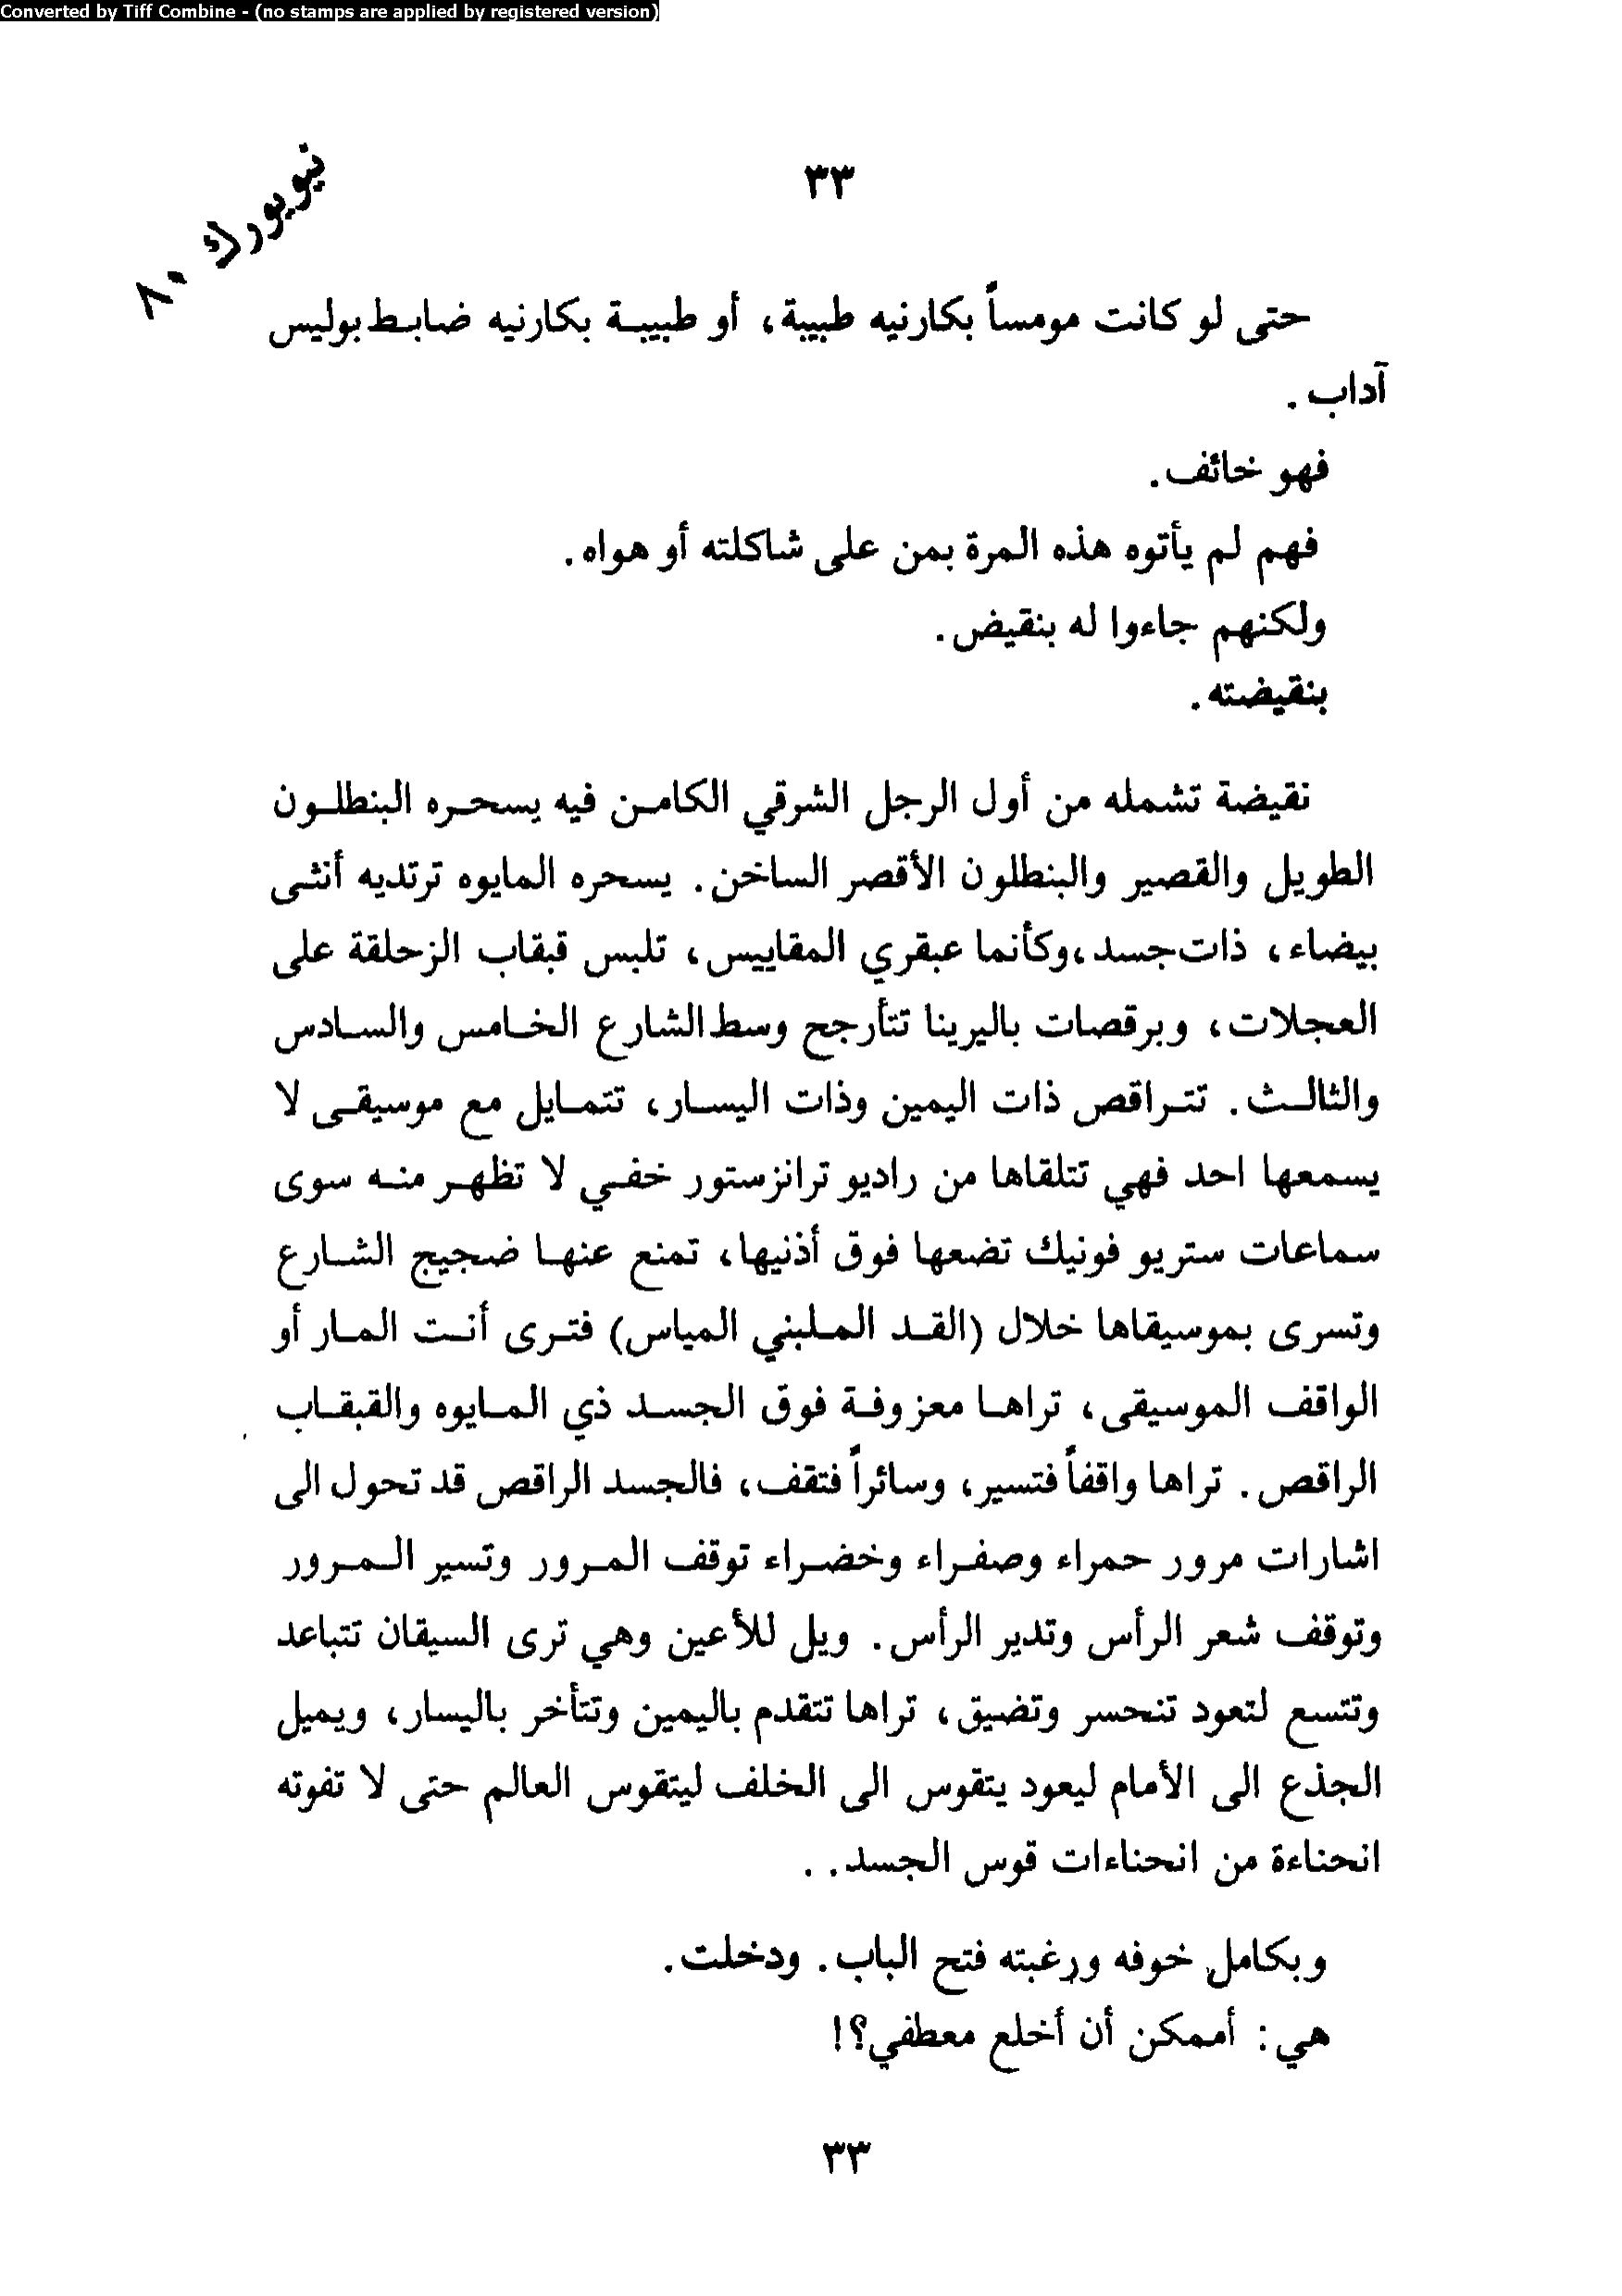 Converted by Tiff Combine - (no stamps are applied by registered version)
نيويورك ٨٠
٣٣
حتى لو كانت مومساً بكارنيه طبيبة، أو طبيبة بكارنيه ضابط بوليس
آداب.
فهو خائف.
فهم لم يأتوه هذه المرة بمن على شاكلته أو هواه.
ولكنهم جاءوا له بنقيض.
بنقيضته.
نقيضة تشمله من أول الرجل الشرقي الكامن فيه يسحره البنطلون
الطويل والقصير والبنطلون الأقصر الساخن. يسحره المايوه ترتديه أنثى
بيضاء، ذات جسد، وكأنما عبقري المقاييس، تلبس قبقاب الزحلقة على
العجلات، وبرقصات باليرينا تتأرجح وسط الشارع الخامس والسادس
والثالث. تتراقص ذات اليمين وذات اليسار، تتمايل مع موسيقى لا
يسمعها احد فهي تتلقاها من راديو ترانزستور خفي لا تظهر منه سوى
سماعات ستريو فونيك تضعها فوق أذنيها، تمنع عنها ضجيج الشارع
وتسرى بموسيقاها خلال (القد الملبني المياس) فترى أنت المار أو
الواقف الموسيقى، تراها معزوفة فوق الجسد ذي المايوه والقبقاب
الراقص. تراها واقفاً فتسير، وسائراً فتقف، فالجسد الراقص قد تحول الى
اشارات مرور حمراء وصفراء وخضراء توقف المرور وتسير المرور
وتوقف شعر الرأس وتدير الرأس. ويل للأعين وهي ترى السيقان تتباعد
وتتسع لتعود تنحسر وتضيق، تراها تتقدم باليمين وتتأخر باليسار، ويميل
الجذع الى الأمام ليعود يتقوس الى الخلف ليتقوس العالم حتى لا تفوته
انحناءة من انحناءات قوس الجسد..
وبكامل خوفه ورغبته فتح الباب. ودخلت.
هي: أممكن أن أخلع معطفي؟!
٣٣